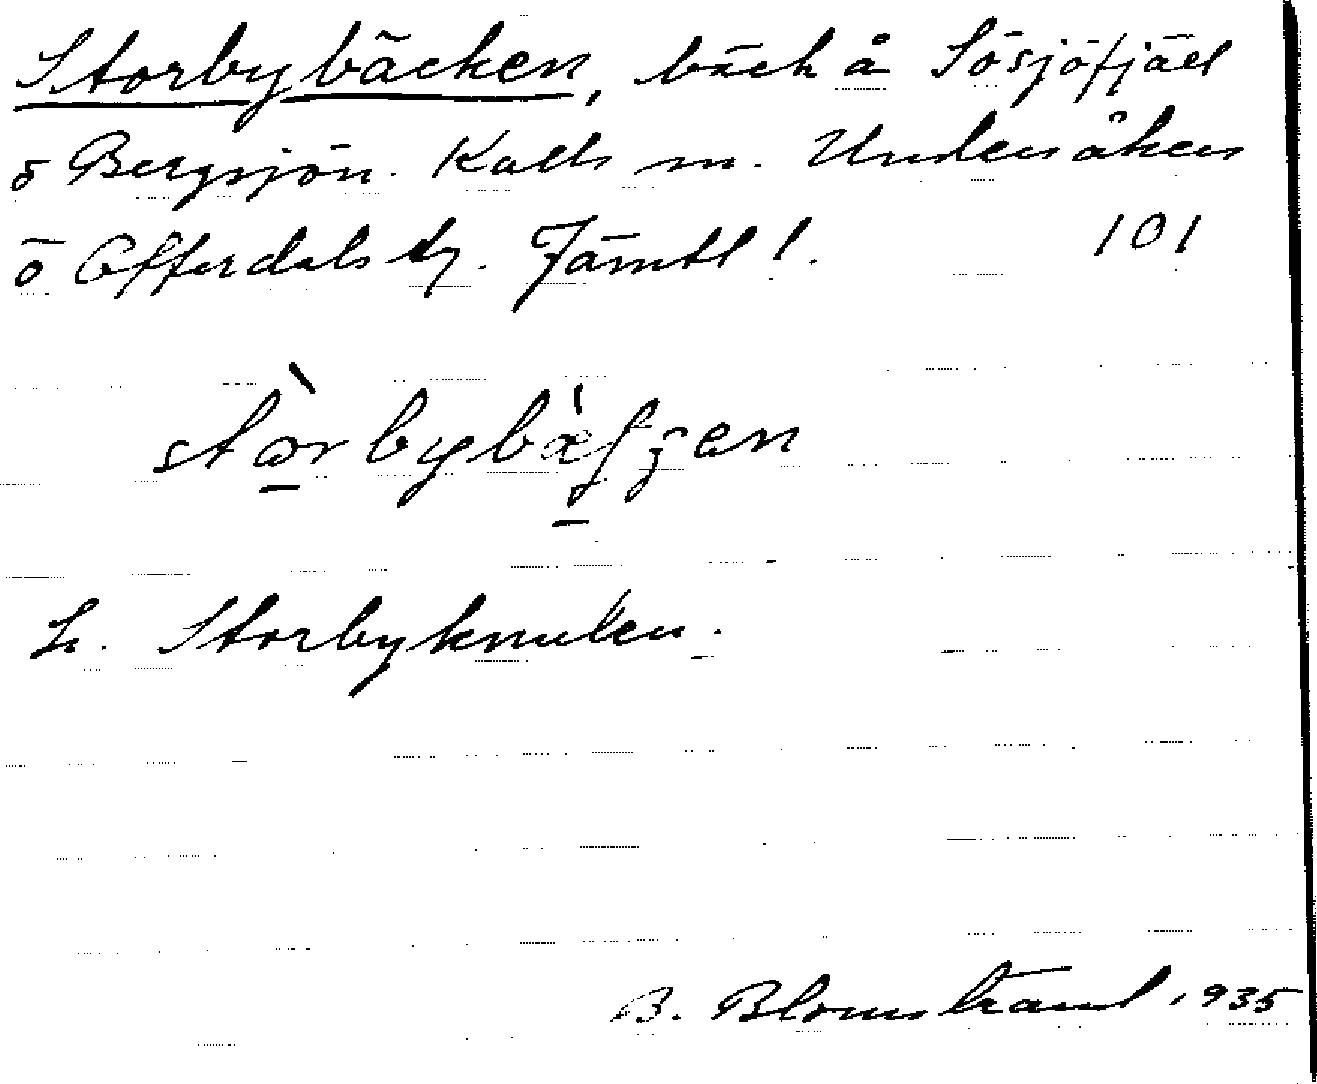 Storbybäcken, bäck å Sösjöfjäll
ö Bergsjön. Kalls sn. Undersåkers
o Offerdals tg. Jämtl. 101
L. Storbyknulen.
B. Blomstrand 1935